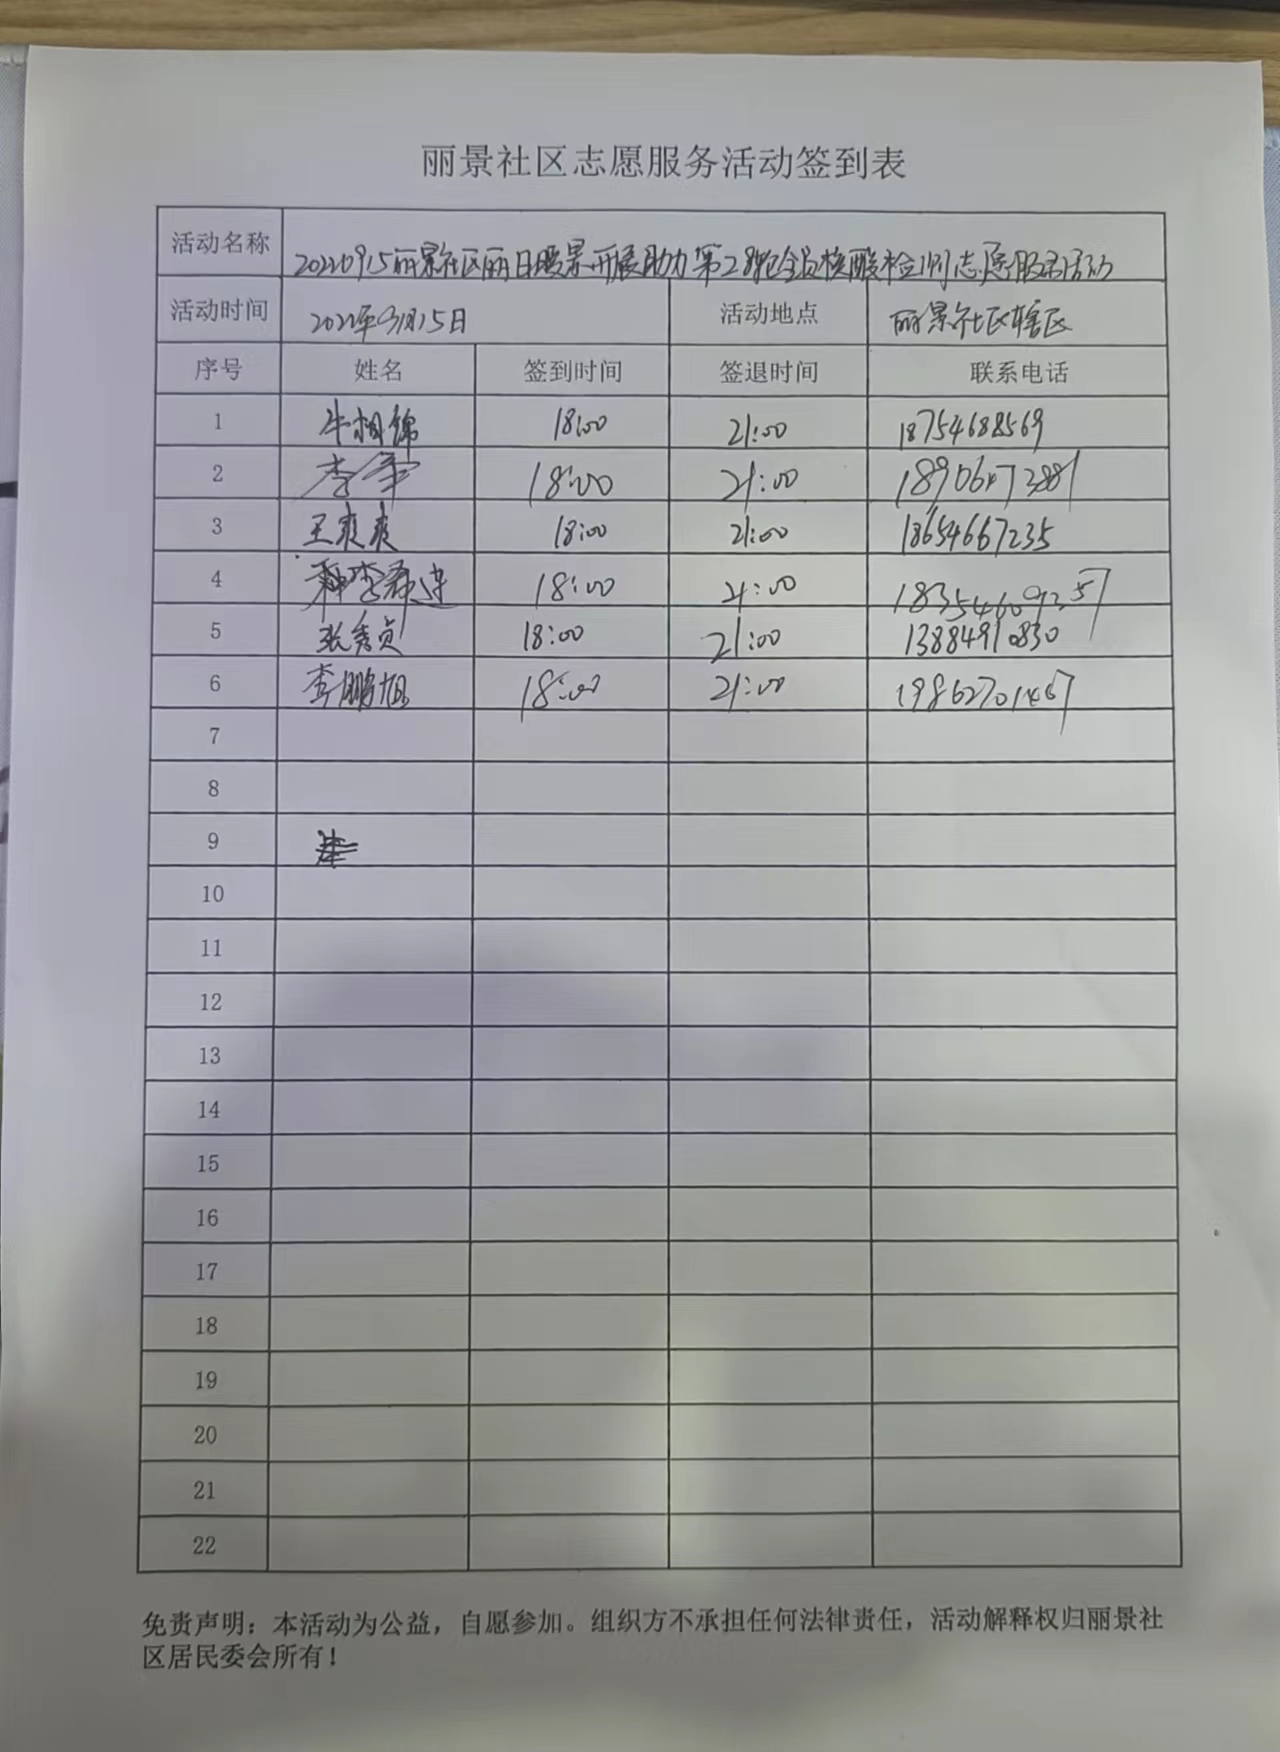 丽景社区志愿服务活动签到表
活动名称 20220915丽景社区丽日暖景开展助力第28轮全员核酸检测志愿服务活动
活动时间 2022年9月15日 活动地点 丽景社区辖区
序号 姓名 签到时间 签退时间 联系电话
1 牛相锦 18:00 21:00 18754688569
2 李军 18:00 21:00
3 王爽爽 18:00 21:00 18654667235
4 18:00 21:00
5 张秀贞 18:00 21:00 13884910830
6 李鹏旭 18:00 21:00
7
8
9
10
11
12
13
14
15
16
17
18
19
20
21
22
免责声明：本活动为公益，自愿参加。组织方不承担任何法律责任，活动解释权归丽景社
区居民委会所有！